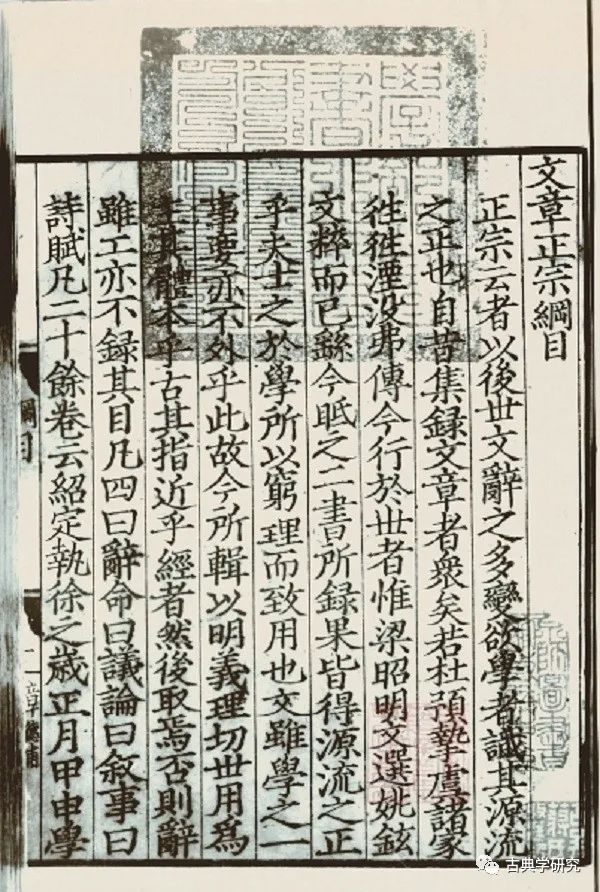 文章正宗綱目
正宗云者以後世文辭之多變欲學者識其源流
之正也自昔集録文章者衆矣若杜預摯虞諸家
徃徃湮没弗傳今行於世者惟梁昭明文選姚鉉
文粹而已繇今眡之二書所録果皆得源流之正
乎夫士之於學所以窮理而致用也文雖學之一
事要亦不外乎此故今所輯以明義理切世用爲
主其體本乎古其指近乎經者然後取焉否則辭
雖工亦不録其目凡四曰辭命曰議論曰敘事曰
詩賦凡二十餘卷云紹定執徐之歳正月甲申學
綱目
古典学研究